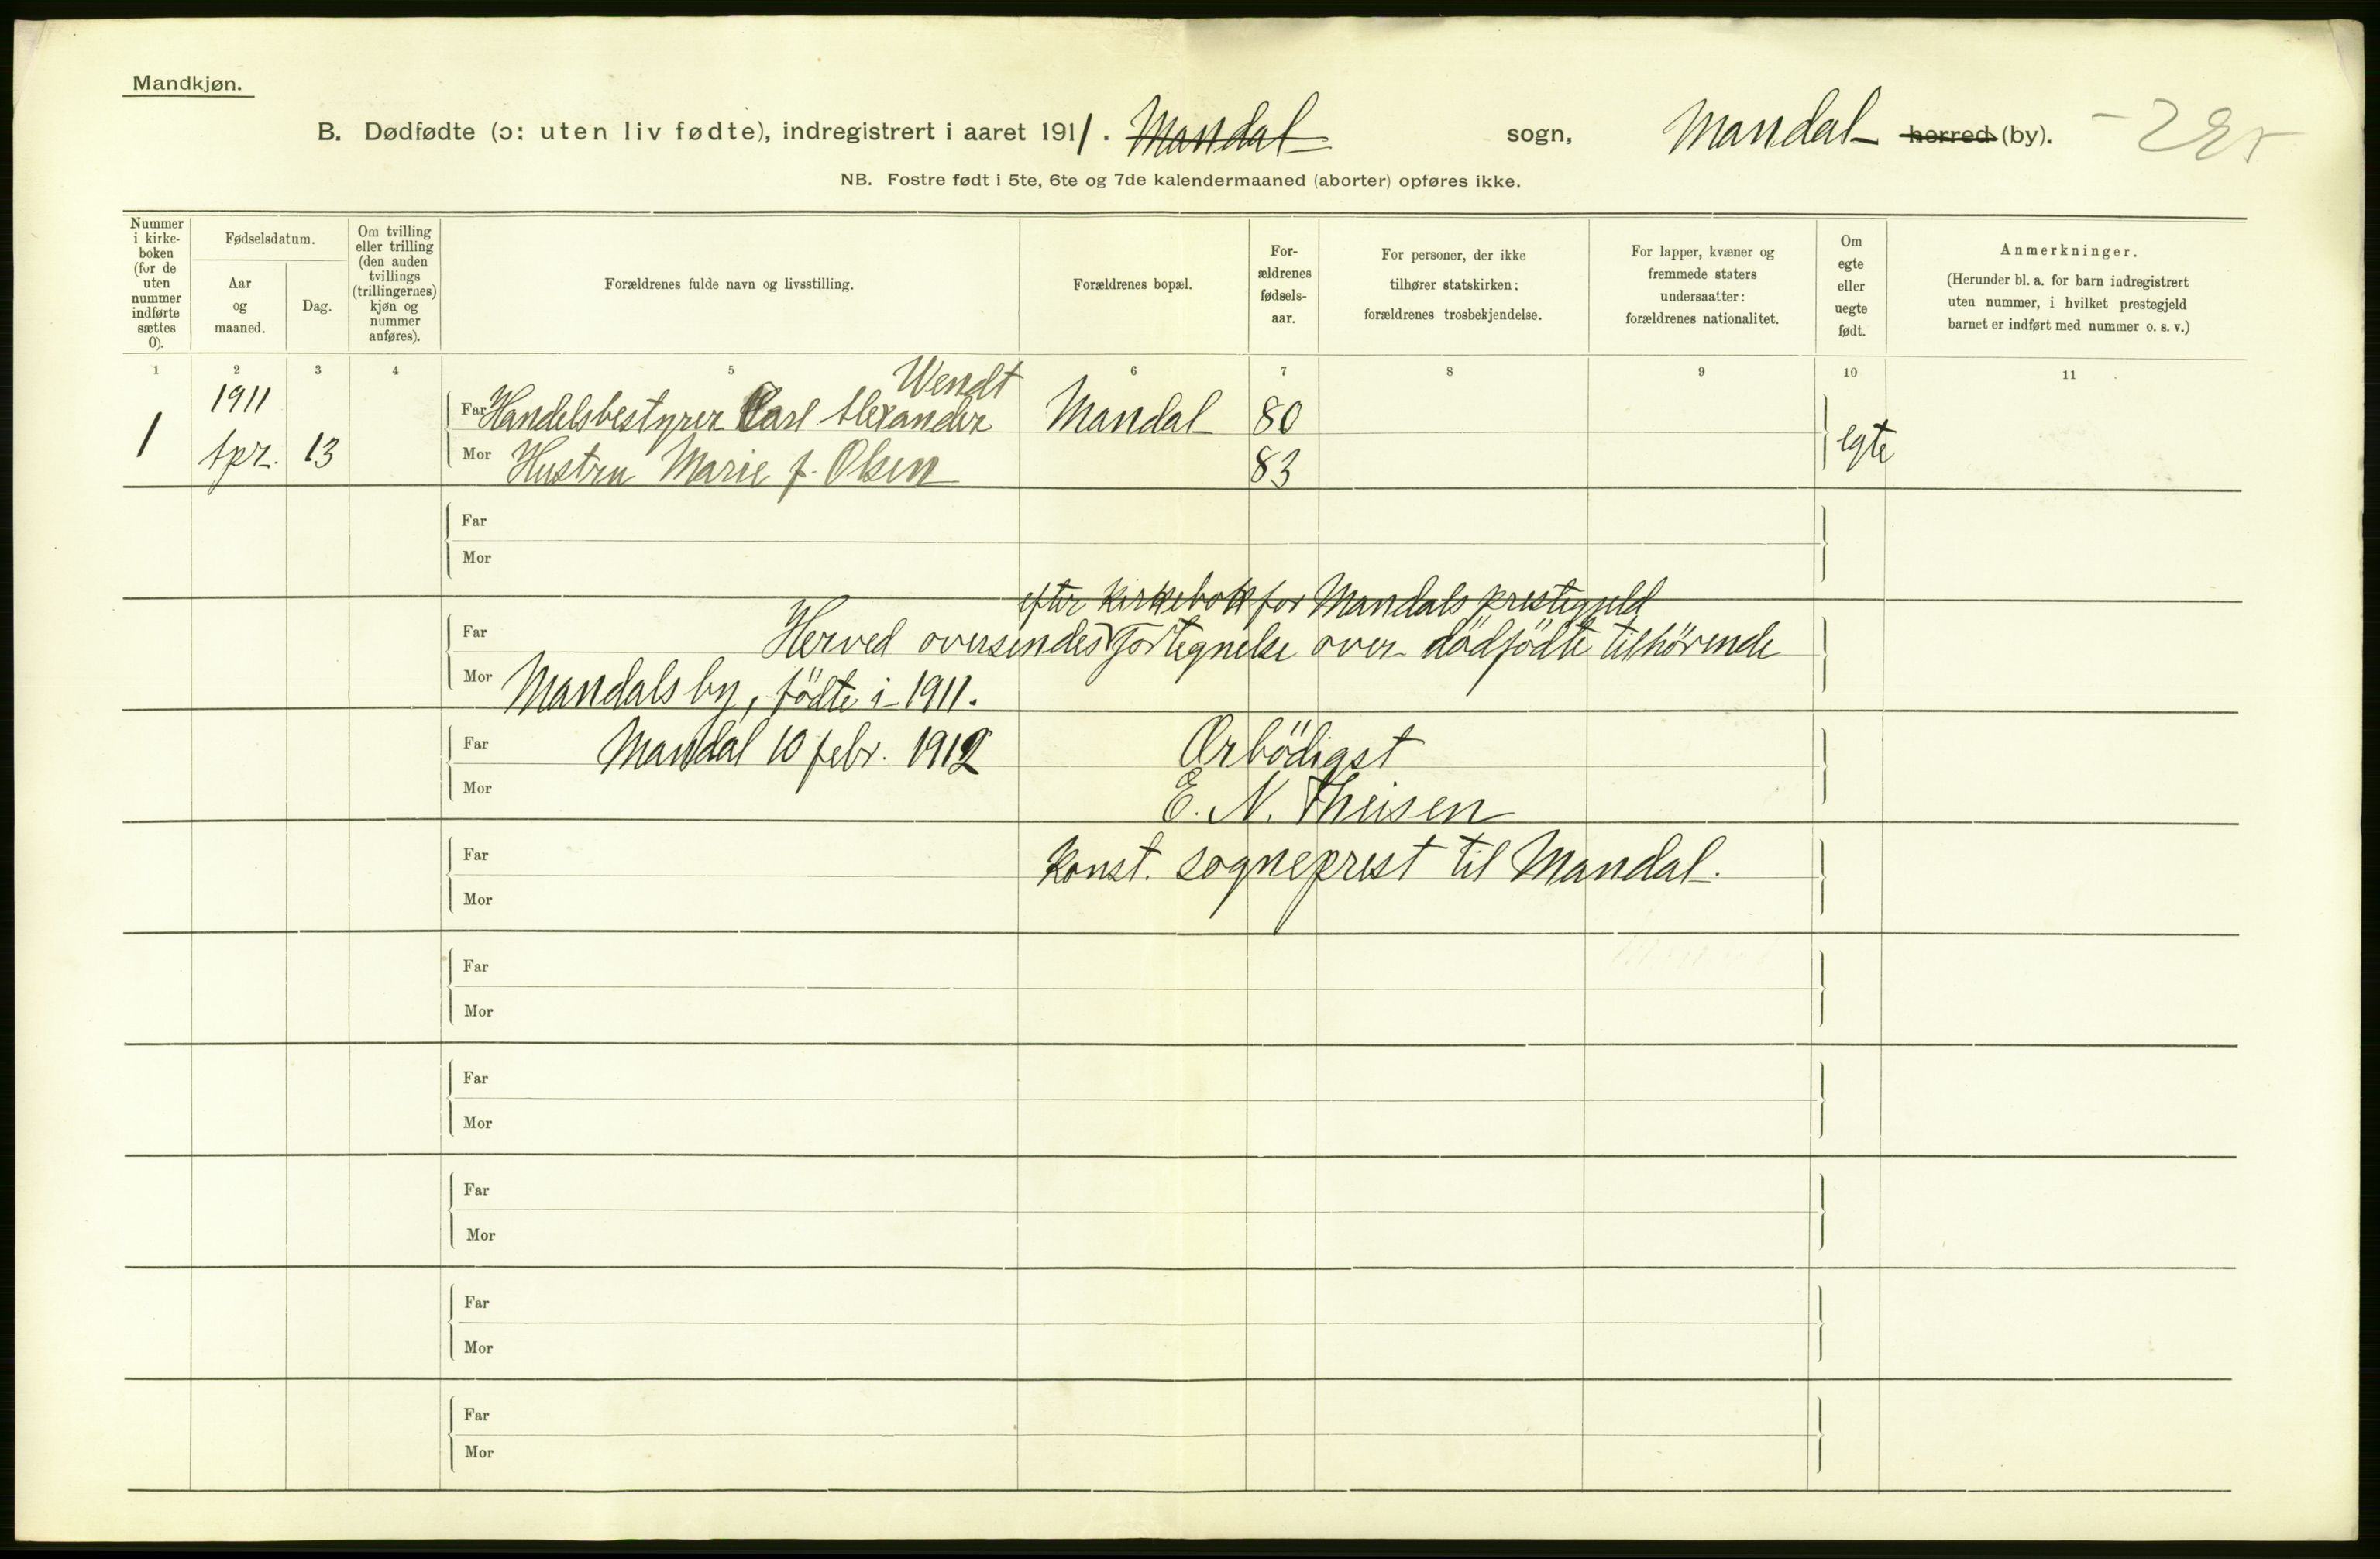 Mandkjøn.
B. Dødfødte (ɔ: uten liv fødte), indregistrert i aaret 1911. Mandal sogn, Mandal herred (by).
NB. Fostre født i 5te, 6te og 7de kalendermaaned (aborter) opføres ikke.
Nummer i kirke-boken (for de uten nummer indførte sættes 0).
Fødselsdatum.
Aar og maaned.
Dag.
Om tvilling eller trilling (den anden tvillings (trillingernes) kjøn og nummer anføres).
Forældrenes fulde navn og livsstilling.
Forældrenes bopæl.
For-ældrenes fødsels-aar.
For personer, der ikke tilhører statskirken: forældrenes trosbekjendelse.
For lapper, kvæner og fremmede staters undersaatter: forældrenes nationalitet.
Om egte eller uegte født.
Anmerkninger.
(Herunder bl. a. for barn indregistrert uten nummer, i hvilket prestegjeld barnet er indført med nummer o. s. v.)
1 2 3 4 5 6 7 8 9 10 11
1 1911 Apr. 13
Far Handelsbestyrer Carl Alexander Wendt Mandal 80 egte
Mor Hustru Marie f. Olsen 83
Far
Mor
efter kirkebok for Mandals prestegjeld
Far Herved oversendes fortegnelse over dödfödte tilhörende
Mor Mandals by, födte i 1911.
Far Mandal 10 febr. 1912 Ærbödigst
Mor E. N. Theisen
Far konst. sogneprest til Mandal.
Mor
Far
Mor
Far
Mor
Far
Mor
Far
Mor
Far
Mor